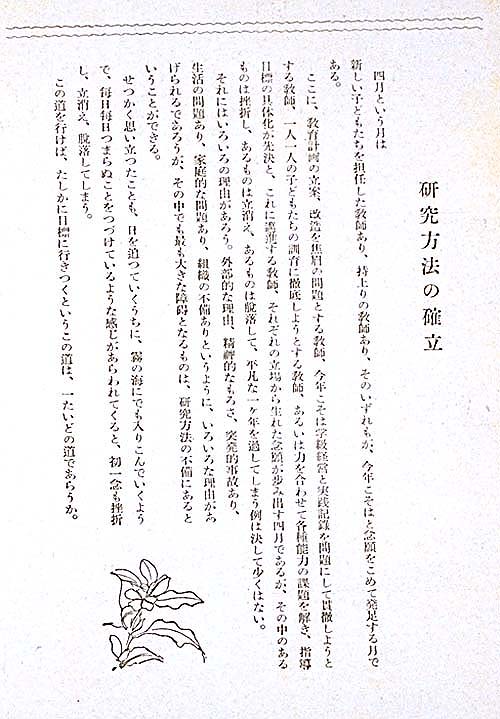 研究方法の確立
四月という月は
新しい子どもたちを担任した教師あり、持上りの教師あり、そのいずれもが、今年こそはと念願をこめて発足する月で
ある。
ここに、教育計画の立案、改造を焦眉の問題とする教師、今年こそは学級経営と実践記録を問題にして貫徹しようと
する教師、一人一人の子どもたちの訓育に徹底しようとする教師、あるいは力を合わせて各種能力の課題を解き、指導
目標の具体化が先決と、これに邁進する教師、それぞれの立場から生れた念願が歩み出す四月であるが、その中のある
ものは挫折し、あるものは立消え、あるものは脱落して、平凡な一ヶ年を過してしまう例は決して少くはない。
それにはいろいろの理由があろう。外部的な理由、精神的なもろさ、突発的事故あり、
生活の問題あり、家庭的な問題あり、組織の不備ありというように、いろいろな理由があ
げられるであろうが、その中でも最も大きな障碍となるものは、研究方法の不備にあると
いうことができる。
せつかく思い立つたことも、日を追つていくうちに、霧の海にでも入りこんでいくよう
で、毎日毎日つまらぬことをつづけているような感じがあらわれてくると、初一念も挫折
し、立消え、脱落してしまう。
この道を行けば、たしかに目標に行きつくというこの道は、一たいどの道であらうか。